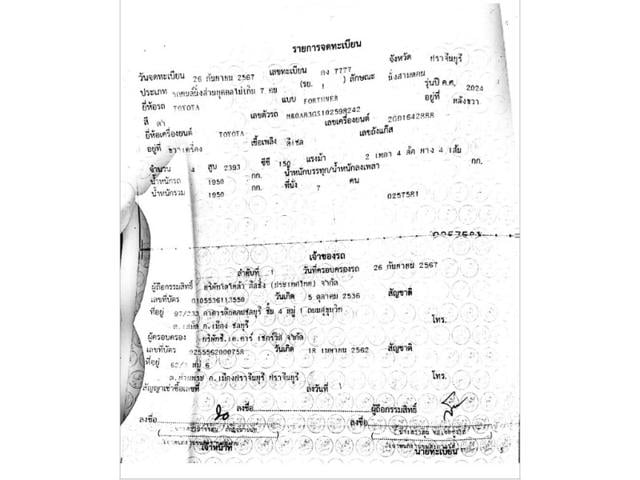 รายการจดทะเบียน
วันจดทะเบียน 26 กันยายน 2567 เลขทะเบียน กง 7777 จังหวัด ปราจีนบุรี
ประเภท รถยนต์นั่งส่วนบุคคลไม่เกิน 7 คน (รย. 1 ) ลักษณะ นั่งสามตอน
ยี่ห้อรถ TOYOTA แบบ FORTUNER รุ่นปี ค.ศ. 2024
สี ดำ เลขตัวรถ MR0AB3GS102598242 อยู่ที่ หลังขวา
ยี่ห้อเครื่องยนต์ TOYOTA เลขเครื่องยนต์ 2GD1642888
อยู่ที่ ขวาเครื่อง เชื้อเพลิง ดีเซล เลขถังแก๊ส
จำนวน 4 สูบ 2393 ซีซี 150 แรงม้า 2 เพลา 4 ล้อ ยาง 4 เส้น
น้ำหนักรถ 1950 กก. น้ำหนักบรรทุก/น้ำหนักลงเพลา กก.
น้ำหนักรวม 1950 กก. ที่นั่ง 7 คน
0257581
เจ้าของรถ
ลำดับที่ 1 วันที่ครอบครองรถ 26 กันยายน 2567
ผู้ถือกรรมสิทธิ์ บริษัทโตโยต้า ลีสซิ่ง (ประเทศไทย) จำกัด
เลขที่บัตร 0105536113550 วันเกิด 5 ตุลาคม 2536 สัญชาติ
ที่อยู่ 97/233 อาคารติดถนนชลบุรี ชั้น 4 หมู่ 1 ถนนสุขุมวิท
ต.เสม็ด อ.เมือง ชลบุรี โทร.
ผู้ครอบครอง จำกัด
เลขที่บัตร 0255562000758 วันเกิด 18 เมษายน 2562 สัญชาติ
ที่อยู่ หมู่ 6
อ.เมืองปราจีนบุรี ปราจีนบุรี โทร.
สัญญาเช่าซื้อเลขที่ ลงวันที่
ลงชื่อ ลงชื่อ ผู้ถือกรรมสิทธิ์
เจ้าหน้าที่ นายทะเบียน